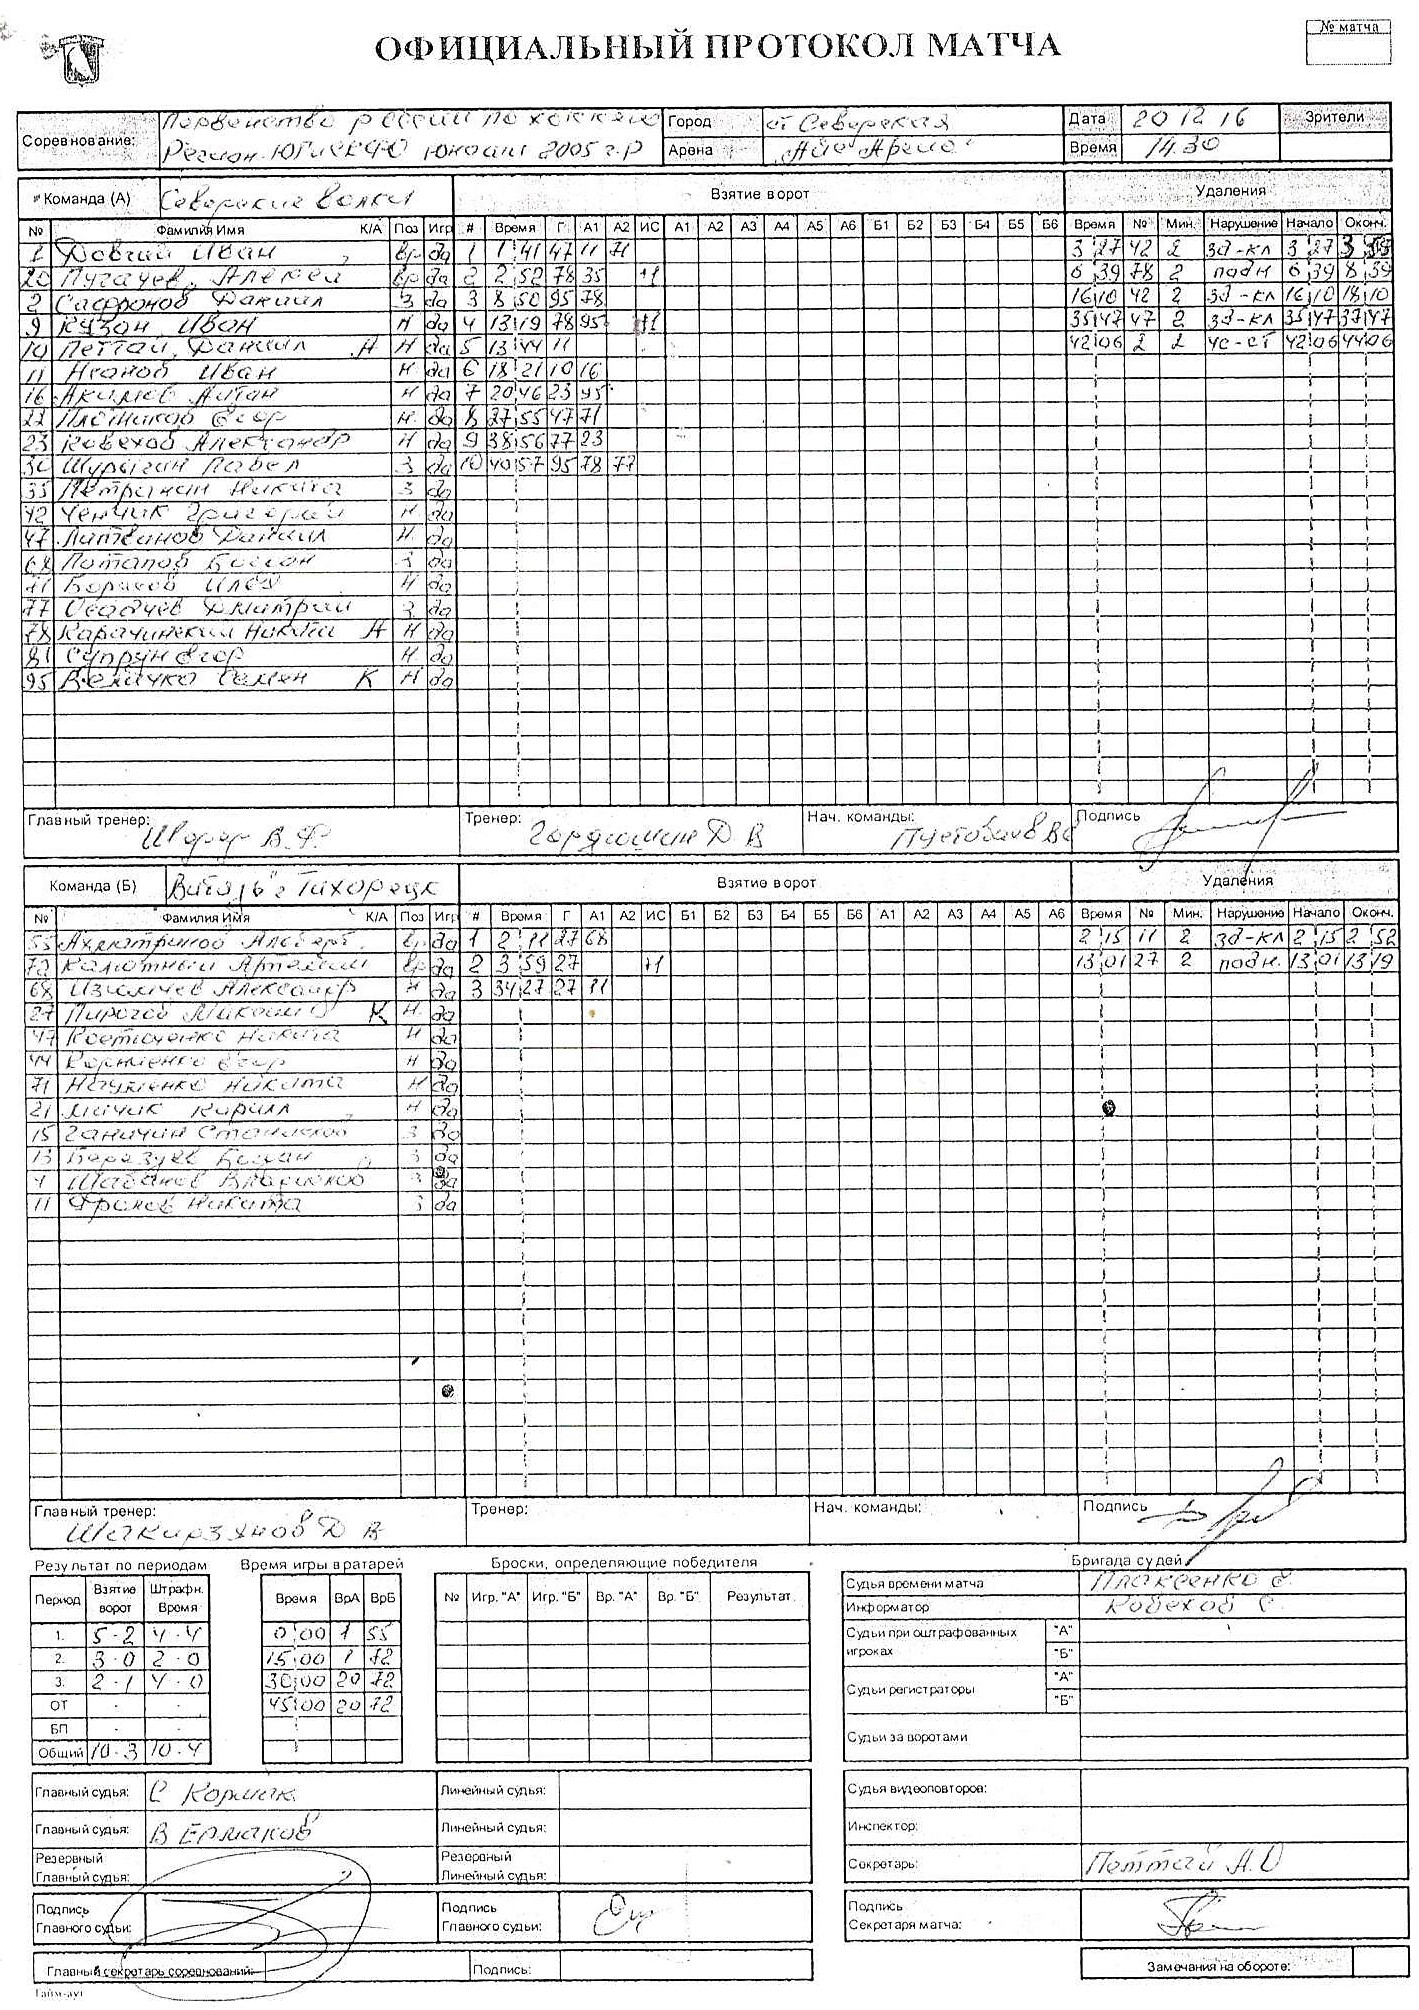 № матча
ОФИЦИАЛЬНЫЙ ПРОТОКОЛ МАТЧА
Соревнование: Первенство России по хоккею Город ст Северская Дата 20 12 16 Зрители
Регион ЮГ и СКФО юноши 2005 г.р Арена "Айс Арена" Время 14.30
Команда (А) Северские волки Взятие ворот Удаления
№ Фамилия Имя К/А Поз Игр # Время Г А1 А2 ИС А1 А2 А3 А4 А5 А6 Б1 Б2 Б3 Б4 Б5 Б6 Время № Мин. Нарушение Начало Оконч.
1 Довгий Иван Вр да 1 1 41 47 11 71 3 27 42 2 зд-кл 3 27 3 59
20 Пугачев Алексей Вр да 2 2 52 78 35 +1 6 39 78 2 подн 6 39 8 39
2 Сафронов Даниил З да 3 8 50 95 78 16 10 42 2 зд-кл 16 10 18 10
9 Кузан Иван Н да 4 13 19 78 95 +1 35 47 47 2 зд-кл 35 47 37 47
10 Петтай Даниил А Н да 5 13 44 11 42 06 2 2 42 06 44 06
11 Иван Н да 6 18 21 10 16
16 Н да 7 20 46 23 95
22 Плотников Егор Н да 8 27 55 47 71
23 Ковехов Александр Н да 9 38 56 77 23
30 Шурыгин Павел З да 10 40 57 95 78 77
35 Никита З да
42 Ченчик Григорий Н да
47 Литвинов Даниил Н да
68 Потапов Богдан З да
71 Борисов Илья Н да
77 Осадчев Дмитрий З да
78 Карачинский Никита А Н да
81 Супрун Егор Н да
95 Величко Семен К Н да
Главный тренер: Тренер: Д В Нач. команды: Подпись
Команда (Б) Витязь г Тихорецк Взятие ворот Удаления
№ Фамилия Имя К/А Поз Игр # Время Г А1 А2 ИС Б1 Б2 Б3 Б4 Б5 Б6 А1 А2 А3 А4 А5 А6 Время № Мин. Нарушение Начало Оконч.
55 Альберт Вр да 1 2 11 27 68 2 15 11 2 зд-кл 2 15 2 52
72 Калютный Артемий Вр да 2 3 59 27 +1 13 01 27 2 подн. 13 01 13 19
68 Александр Н да 3 34 27 27 11
27 Пирогов Михаил К Н да
47 Костюченко Никита Н да
44 Корниенко Егор Н да
71 Науменко Никита Н да
21 Мачик Кирилл Н да
15 Ганичин Станислав З да
13 Богдан З да
4 З да
11 Фролов Никита З да
Главный тренер: Шакирзянов Д В Тренер: Нач. команды: Подпись
Результат по периодам Время игры вратарей Броски, определяющие победителя Бригада судей
Период Взятие ворот Штрафн. Время Время ВрА ВрБ № Игр. "А" Игр. "Б" Вр. "А" Вр. "Б" Результат
Судья времени матча Плаксенко
Информатор Ковехов С.
1. 5-2 4-4 0 00 1 55 Судьи при оштрафованных игроках "А"
2. 3-0 2-0 15 00 1 72 "Б"
3. 2-1 4-0 30 00 20 72 Судьи регистраторы "А"
ОТ - - 45 00 20 72 "Б"
БП - -
Общий 10-3 10-4 Судьи за воротами
Главный судья: С Кормак Линейный судья: Судья видеоповторов:
Главный судья: В Ермаков Линейный судья: Инспектор:
Резервный Главный судья: Резервный Линейный судья: Секретарь: Петтай А.О
Подпись Главного судьи: Подпись Главного судьи: Подпись Секретаря матча:
Главный секретарь соревнований: Подпись: Замечания на обороте:
Тайм-аут